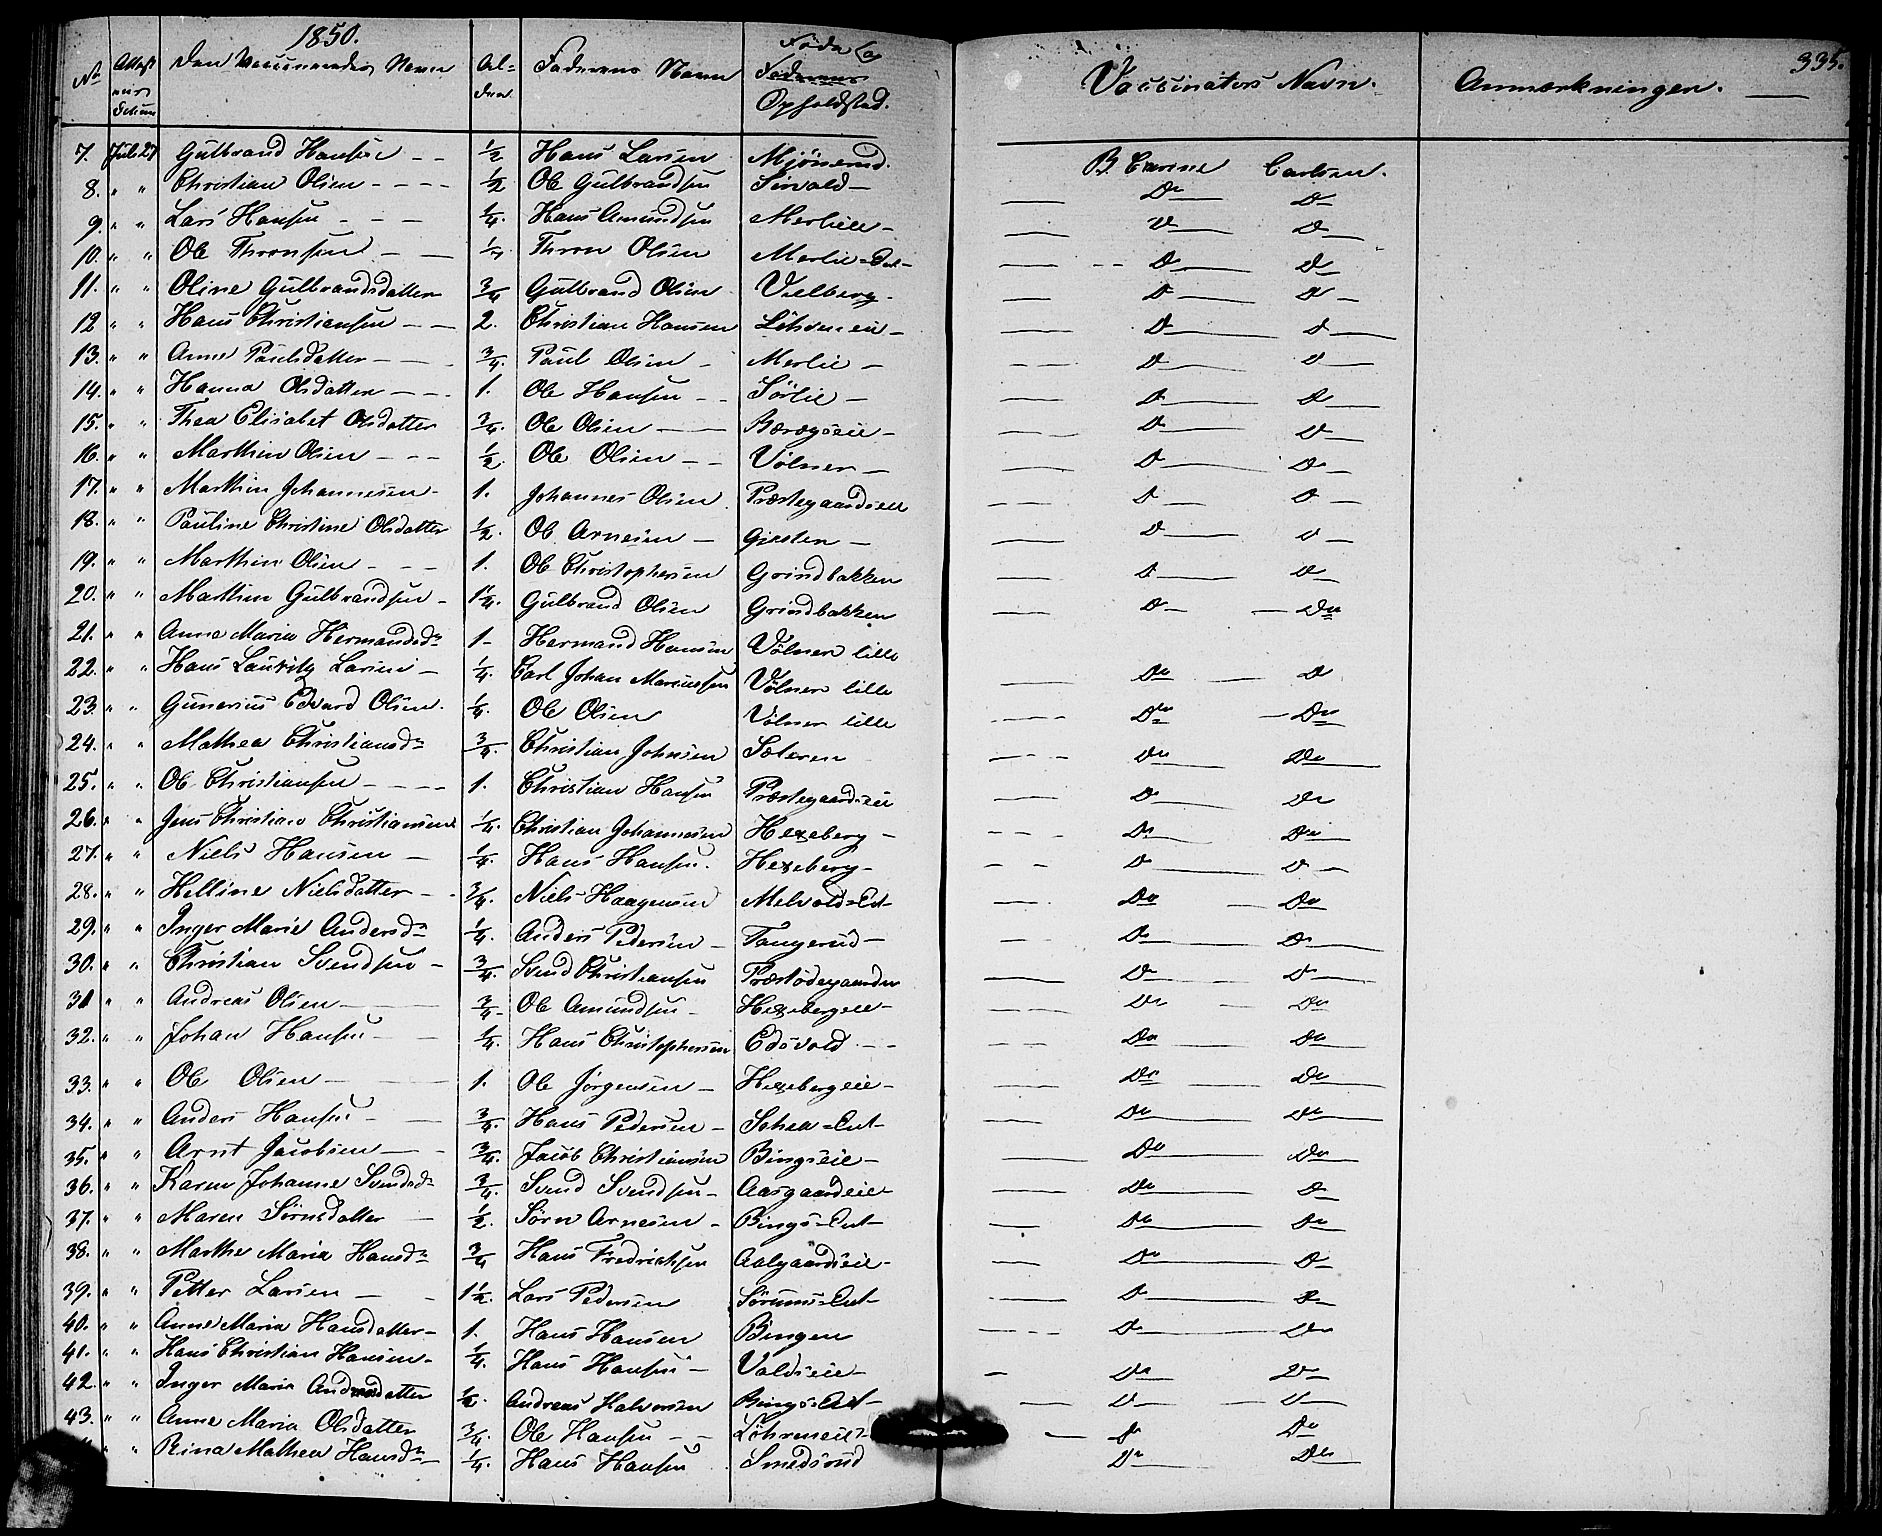 1850.
335.
No Attest Den Vaccineredes Navn Al- Faderens Navn Føde
Faderens
Opholdsted.
Vaccinateurs Navn. Anmærkninger.
7. Juli 27 Gulbrand Hansen 1/2 Hans Larsen Mjönerud. B. Carlsen.
8. " " Christian Olsen 1/2 Ole Gulbrandsen Do Do
9. " " Lars Hansen 1/4. Hans Amundsen Merlieie Do Do
10. " " Ole Thronsen Thron Olsen Merlie Do Do
11. " " Oline Gulbrandsdatter 3/4 Gulbrand Olsen Vælberg Do Do
12 " " Hans Christiansen 2. Christian Hansen Do Do
13. " " Anne Paulsdatter 3/4. Paul Olsen Merlie Do Do
14. " " Hanna Olsdatter 1. Ole Hansen Sörlie Do Do
15. " " Thea Elisabet Olsdatter 3/4. Ole Olsen Do Do
16. " " Marthin Olsen 1/2 Ole Olsen Völner Do Do
17. " " Marthin Johannesen 1. Johannes Olsen Præstegaardseie Do Do
18. " " Pauline Christine Olsdatter 1/2. Ole Arnesen Gjesten Do Do
19. " " Marthin Olsen 1. Ole Christophersen Grindbakken Do Do
20. " " Marthin Gulbrandsen 1 1/4. Gulbrand Olsen Grindbakken Do Do
21. " " Anne Maria Hermandsdr 1 Hermand Hansen Völner lille
22. " " Hans Lauritz Larsen 1/4. Carl Johan Marcussen Völner lille Do Do
23. " " Gunerius Edvard Olsen 1/4. Ole Olsen Völner lille Do Do
24. " " Mathea Christiansdr 3/4. Christian Johnsen Sæteren Do Do
25. " " Ole Christiansen 1. Christian Hansen Præstegaardseie Do Do
26. " " Jens Christian Christiansen 1/4. Christian Johannesen Hexeberg Do Do
27. " " Niels Hansen 1/4. Hans Hansen Hexeberg Do Do
28. " " Helline Nielsdatter 3/4. Niels Haagensen Melvold Do Do
29. " " Inger Marie Andersdr 1/4. Anders Pedersen Tangerud Do Do
30. " " Christian Svendsen 3/4. Svend Christiansen Do Do
31 " " Andreas Olsen 3/4 Ole Amundsen Hexebergeie Do Do
32. " " Johan Hansen 1/4. Hans Christophersen Edsvold Do Do
33. " " Ole Olsen 1. Ole Jörgensen Hexebergeie Do Do
34. " " Anders Hansen 3/4. Hans Pedersen Do Do
35. " " Arnt Jacobsen 3/4. Jacob Christiansen Bingseie Do Do
36. " " Karen Johanne Svendsdr 3/4. Svend Svendsen Aasgaardeie Do Do
37. " " Maren Sörnsdatter 1/2. Sörn Arnesen Do Do
38. " " Marthe Maria Hansdr 3/4 Hans Fredrichsen Aalgaardseie Do Do
39. " " Petter Larsen 1 1/2. Lars Pedersen Do Do
40. " " Anne Maria Hansdatter 1. Hans Hansen Bingen Do Do
41. " " Hans Christian Hansen 1/4. Hans Hansen Valdseie Do Do
42. " " Inger Maria 1/2. Andreas Halvorsen Do Do
43. " " Anne Maria Olsdatter 3/4. Ole Hansen Do Do
" " Rina Mathea Hansdr 1/4. Hans Hansen Smedsrud Do Do